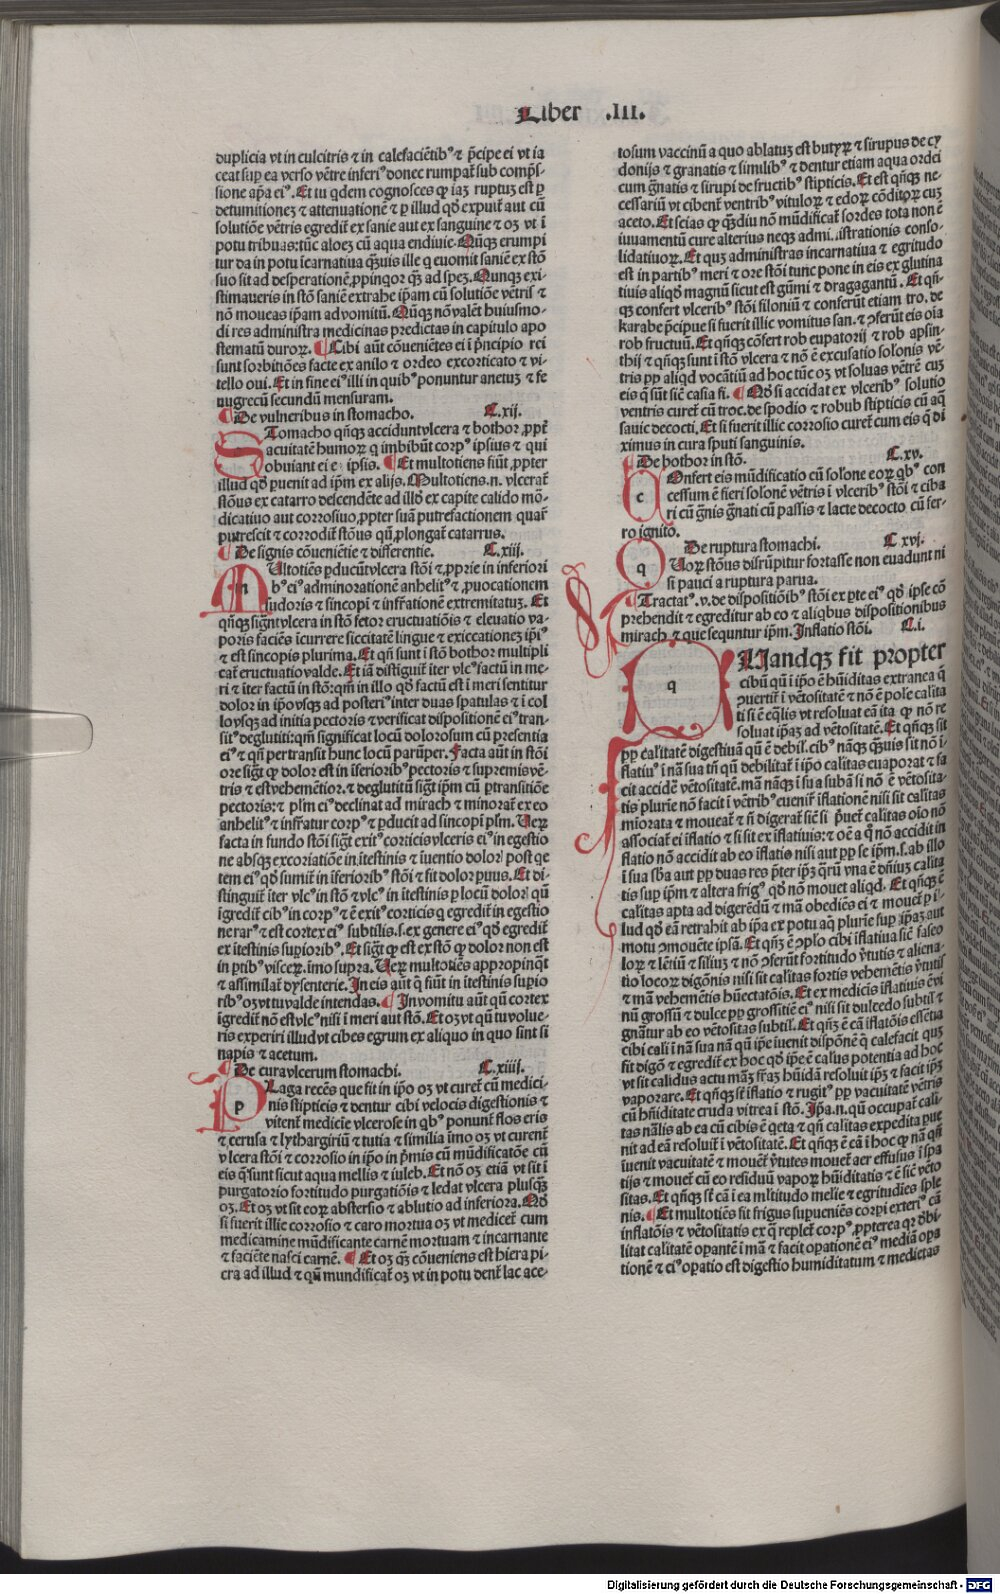 Liber .III.
duplicia vt in culcitris ⁊ in calefaciẽtibꝰ ⁊ p̃cipe ei vt ia
ceat suꝑ ea verso vẽtre inferiꝰ donec rumpat̃ sub comp̃s
sione ap̃a eiꝰ. Et tu q̃dem cognosces ꝙ iaꝫ ruptuꝫ est ꝑ
detumitioneꝫ ⁊ attenuationẽ ⁊ ꝑ illud qð expuit̃ aut cũ
solutiõe vẽtris egredit̃ ex sanie aut ex sanguine ⁊ oꝫ vt ĩ
potu tribuas: tũc aloeꝫ cũ aqua endiuie. Qñqꝫ erumpi
tur da in potu ĩcarnatiua q̃ꝫuis ille q̃ euomit saniẽ ex stõ
suo sit ad desperationẽ ꝓpinqꝰ qꝫ ad speꝫ. Nunqꝫ exi-
stimaueris in stõ saniẽ extrahe ip̃am cũ solutiõe vẽtris ⁊
nõ moueas ip̃am ad vomitũ. Qñqꝫ nõ valẽt huiusmo-
di res administra medicinas predictas in capitulo apo
stematũ duroꝝ. ¶ Cibi aũt cõueniẽtes ei ĩ p̃ncipio rei
sunt sorbitiões facte ex anilo ⁊ ordeo excorticato ⁊ vi-
tello oui. Et in fine eiꝰ illi in quibꝰ ponuntur anetuꝫ ⁊ fe
nugrecũ secundũ mensuram.
¶ De vulneribus in stomacho. C.xij.
STomacho qñqꝫ accidunt vlcera ⁊ bothor ꝓpt̃
acuitatẽ humoꝝ q̃ imbibũt corpꝰ ipsius ⁊ qui
obuiant ei ipsis. ¶ Et multotiens fiũt ꝓpter
illud qð ꝑuenit ad ip̃m ex alijs. Multotiens .n. vlcerat̃
stõus ex catarro descendẽte ad illð ex capite calido mõ-
dicatiuo aut corrosiuo ꝓpter suã putrefactionem quar̃
putrescit ⁊ corrodit̃ stõus qñ ꝓlongat̃ catarrus.
¶ De signis cõueniẽtie ⁊ differentie. C.xiij.
mUltotiẽs ꝓducũt vlcera stõi ⁊ ꝓprie in inferiori
bꝰ eiꝰ adminorationẽ anhelitꝰ ⁊ ꝓuocationem
sudoris ⁊ sincopi ⁊ infr̃ationẽ extremitatuꝫ. Et
qñqꝫ sign̄t vlcera in stõ fetor eructuatiõis ⁊ eleuatio va-
poris faciẽs ĩcurrere siccitatẽ lingue ⁊ exiccationeꝫ ip̃iꝰ
⁊ est sincopis plurima. Et qñ sunt ĩ stõ bothor multipli
cat̃ eructuatio valde. Et iã distiguit̃ iter vlcꝰ factũ in me-
ri ⁊ ĩter factũ in stõ: qm̃ in illo qð factũ est ĩ meri sentitur
dolor in ip̃o vsqꝫ ad posteriꝰ inter duas spatulas ⁊ ĩ col
lo vsqꝫ ad initia pectoris ⁊ verificat dispositionẽ eiꝰ tran-
sitꝰ deglutiti: qm̃ significat locũ dolorosum cũ presentia
eiꝰ ⁊ qñ pertransit hunc locũ parũꝑ. Facta aũt in stõi
ore sig̃t ꝙ dolor est in ĩferioribꝰ pectoris ⁊ supremis vẽ-
tris ⁊ est vehemẽtior. ⁊ deglutitũ sig̃t ip̃m cũ ꝑtransitiõe
pectoris: ⁊ pl̃m eiꝰ declinat ad mirach ⁊ minorat̃ ex eo
anhelitꝰ ⁊ infr̃atur corpꝰ ⁊ ꝑducit ad sincopi pl̃m. Ueꝝ
facta in fundo stõi sig̃t exitꝰ corticis vlceris eiꝰ in egestio
ne absqꝫ excoriatiõe in ĩtestinis ⁊ ĩuentio dolor̃ post q̃e
tem eiꝰ qð sumit̃ in ĩferioribꝰ stõi ⁊ sit dolor puus. Et di-
stinguit̃ iter vlcꝰ in stõ ⁊ vlcꝰ in ĩtestinis ꝑ locũ dolor̃ qũ
ĩgredit̃ cibꝰ in corpꝰ ⁊ ẽ exitꝰ corticis q̃ egredit̃ in egestio
ne rarꝰ ⁊ est cortex eiꝰ subtilis .s. ex genere eiꝰ qð egredit̃
ex ĩtestinis suꝑioribꝰ. Et sig̃t ꝙ est ex stõ ꝙ dolor non est
in ꝑtibꝰ visceꝝ. ĩmo supra. Ueꝝ multotiẽs appropinq̃t
⁊ assimilat̃ dysenterie. In eis aũt q̃ fiũt in ĩtestinis supio
ribꝰ oꝫ vt tu valde intendas. ¶ In vomitu aũt qũ cortex
ĩgredit̃ nõ est vlcꝰ nisi ĩ meri aut stõ. Et oꝫ vt qũ tu volue-
ris experiri illud vt cibes egrum ex aliquo in quo sint si
napis ⁊ acetum.
¶ De cura vlcerum stomachi. C.xiiij.
pLaga recẽs que fit in ip̃o oꝫ vt curet̃ cũ medici-
nis stipticis ⁊ dentur cibi velocis digestionis ⁊
vitent̃ mediciẽ vlcerose in qbꝰ ponunt̃ flos eris
⁊ cerusa ⁊ lythargiriũ ⁊ tutia ⁊ similia ĩmo oꝫ vt curent̃
vlcera stõi ⁊ corrosio in ip̃o in p̃mis cũ mũdificatiõe cũ
eis q̃ sunt sicut aqua mellis ⁊ iuleb. Et nõ oꝫ etiã vt sit ĩ
purgatorio fortitudo purgatiõis ⁊ ledat vlcera plusqꝫ
oꝫ. Et oꝫ vt sit eoꝝ abstersio ⁊ ablutio ad inferiora. Qð
si fuerit illic corrosio ⁊ caro mortua oꝫ vt medicet̃ cum
medicamine mũdificante carnẽ mortuam ⁊ incarnante
⁊ faciẽte nasci carnẽ. ¶ Et oꝫ qꝫ cõueniens est hiera pi-
cra ad illud ⁊ qñ mundificat̃ oꝫ vt in potu dent̃ lac ace-
tosum vaccinũ a quo ablatuꝫ est butyꝝ ⁊ sirupus de cy
donijs ⁊ granatis ⁊ similibꝰ ⁊ dentur etiam aqua ordei
cum g̃natis ⁊ sirupi de fructibꝰ stipticis. Et est qñqꝫ ne-
cessariũ vt cibent̃ ventribꝰ vituloꝝ ⁊ edoꝝ cõditoꝝ cuꝫ
aceto. Et scias ꝙ qꝫdiu nõ mũdificat̃ sordes tota non ẽ
iuuamentũ cure alterius neqꝫ admi.istrationis conso-
lidatiuoꝝ. Et quꝫ administras incarnatiua ⁊ egritudo
est in partibꝰ meri ⁊ ore stõi tunc pone in eis ex glutina
tiuis aliqð magnũ sicut est gũmi ⁊ dragagantũ. Et qñ-
qꝫ confert vlceribꝰ stõi filoniũ ⁊ conferũt etiam tro. de
karabe p̃cipue si fuerit illic vomitus san. ⁊ ꝯferũt eis oĩa
rob fructuũ. Et qñqꝫ cõfert rob eupatorij ⁊ rob apsin-
thij ⁊ qñqꝫ sunt ĩ stõ vlcera ⁊ nõ ẽ excusatio solonis vẽ-
tris ꝑp aliqð vocãtiũ ad hoc tũc oꝫ vt soluas vẽtrẽ cuꝫ
eis q̃ sũt sič casia fi. ¶ Qð si accidat ex vlceribꝰ solutio
ventris curet̃ cũ troc. de spodio ⁊ robub stipticis cũ aq̃
sauic decocti. Et si fuerit illic corrosio curet̃ cum eis q̃ di
ximus in cura sputi sanguinis.
¶ De bothor in stõ. C.xv.
cOnfert eis mũdificatio cũ solone eoꝝ qbꝰ con
cessum ẽ fieri solonẽ vẽtris ĩ vlceribꝰ stõi ⁊ ciba
ri cũ g̃nis g̃nati cũ passis ⁊ lacte decocto cũ fer-
ro ignito.
De ruptura stomachi. C.xvj.
qUoꝝ stõus disrũpitur fortasse non euadunt ni
si pauci a ruptura parua.
¶ Tractatꝰ .v. de dispositiõibꝰ stõi ex ꝑte eiꝰ qð ipse cõ
prehendit ⁊ egreditur ab eo ⁊ aliqbus dispositionibus
mirach ⁊ que sequntur ip̃m. Inflatio stõi. C.i.
qUandqꝫ fit propter
cibũ qũ ĩ ip̃o ẽ hũiditas extranea q̃
ꝯuertit̃ ĩ vẽtositatẽ ⁊ nõ ẽ pole calita
ti si ẽ eq̃lis vt resoluat eã ita ꝙ nõ re
soluat ip̃aꝫ ad vẽtositatẽ. Et qñqꝫ fit
ꝑp calitatẽ digestiuã qũ ẽ debil. cibꝰ nãqꝫ q̃ꝫuis sit nõ ĩ-
flatiuꝰ ĩ nã sua tñ qñ debilitat̃ ĩ ip̃o calitas euaporat ⁊ fa
cit accidẽ vẽtositatẽ. mã nãqꝫ ĩ sua subã si nõ ẽ vẽtosita-
tis plurie nõ facit ĩ vẽtribꝰ euenit̃ ĩflationẽ nisi sit calitas
mĩorata ⁊ moueat̃ ⁊ ñ digerat̃ siẽ si ꝑuet̃ calitas oĩo nõ
associat̃ ei ĩflatio ⁊ si sit ex ĩflatiuis: ⁊ oẽ a q̃ nõ accidit in
flatio nõ accidit ab eo ĩflatio nisi aut ꝑp se ip̃m .s. ab illo
ĩ sua sb̃a aut ꝑp duas res p̃ter ip̃ꝫ q̃rũ vna ẽ dñiuꝫ calita
tis suꝑ ip̃m ⁊ altera frigꝰ qð nõ mouet aliqd. Et qñqꝫ ẽ
calitas apta ad digerẽdũ ⁊ mã obediẽs ei ⁊ mouet̃ ꝑ ĩ-
lud qð eã retrahit ab ip̃a ex potu aq̃ plurie suꝑ ip̃aꝫ aut
motu ꝯmouẽte ipsã. Et qñqꝫ ẽ ꝯplo cibi ĩflatiua siẽ faseo
loꝝ ⁊ lẽtiũ ⁊ siliuꝫ ⁊ nõ ꝯferũt fortitudo ṽtutis ⁊ aliena-
tio locoꝝ digõnis nisi sit calitas fortis vehemẽtis ṽtutis
⁊ mã vehemẽtis hũectatõis. Et ex medicis ĩflatiuis ẽ vi
nũ grossũ ⁊ dulce ꝑp grossitiẽ eiꝰ nisi sit dulcedo subtil ⁊
gnãtur ab eo vẽtositas subtil. Et qñqꝫ ẽ cã ĩflatõis essẽtia
cibi cali ĩ nã sua nã qũ ip̃e ĩuenit dispõnẽ q̃ calefacit quꝫ
sit digõ ⁊ egredit̃ ex hoc qð ip̃e ẽ calus potentia ad hoc
vt sit calidus actu mãꝫ fr̃aꝫ hũidã resoluit ip̃ꝫ ⁊ facit ip̃ꝫ
vaporare. Et qñqꝫ st̃ ĩflatio ⁊ rugitꝰ ꝑp vacuitatẽ vẽtris
cũ hñiditate cruda vitrea ĩ stõ. Ip̃a .n. qũ occupat̃ cali-
tas nãlis ab ea cũ cibis ẽ q̃eta ⁊ qñ calitas expedita pue
nit ad eã resoluit̃ ĩ vẽtositatẽ. Et qñqꝫ ẽ cã ĩ hoc ꝙ nã qñ
ĩuenit vacuitatẽ ⁊ mouet̃ ṽtutes mouet̃ aer effusus ĩ spa
tijs ⁊ mouet̃ cũ eo residuũ vapoꝝ hũiditatis ⁊ ẽ siẽ vẽto
sitas. Et qñqꝫ st̃ cã ĩ ea mltitudo melie ⁊ egritudĩes sple
nis. ¶ Et multotiẽs fit frigus supueniẽs corpi exteriꝰ cã
inflatõis ⁊ vẽtositatis ex q̃ replet̃ corpꝰ ꝓpterea qꝛ ðbi-
litat calitatẽ opantẽ ĩ mã ⁊ facit opationẽ eiꝰ mediã opa
tionẽ ⁊ eiꝰ oꝑatio est digestio humiditatum ⁊ medietas
Digitalisierung gefördert durch die Deutsche Forschungsgemeinschaft - DFG